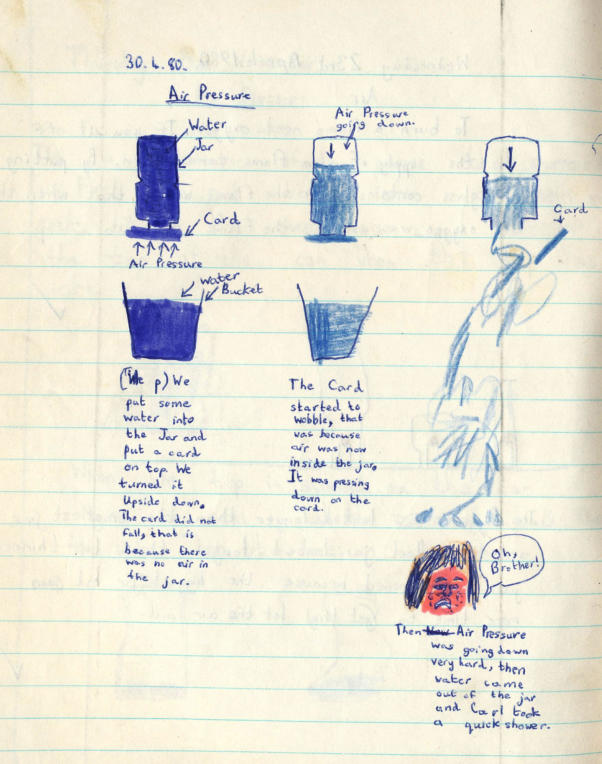 30.4.80.
Air Pressure
Water
Jar
Card
Air Pressure
Water
Bucket
Air Pressure
going down.
Card
(We p) We
put some
water into
the Jar and
put a card
on top. We
turned it
Upside down.
The card did not
fall, that is
because there
was no air in
the jar.
The Card
started to
wobble, that
was because
air was now
inside the jar.
It was pressing
down on the
card.
Oh,
Brother!
Then Now Air Pressure
was going down
very hard, then
water came
out of the jar
and Carl took
a quick shower.